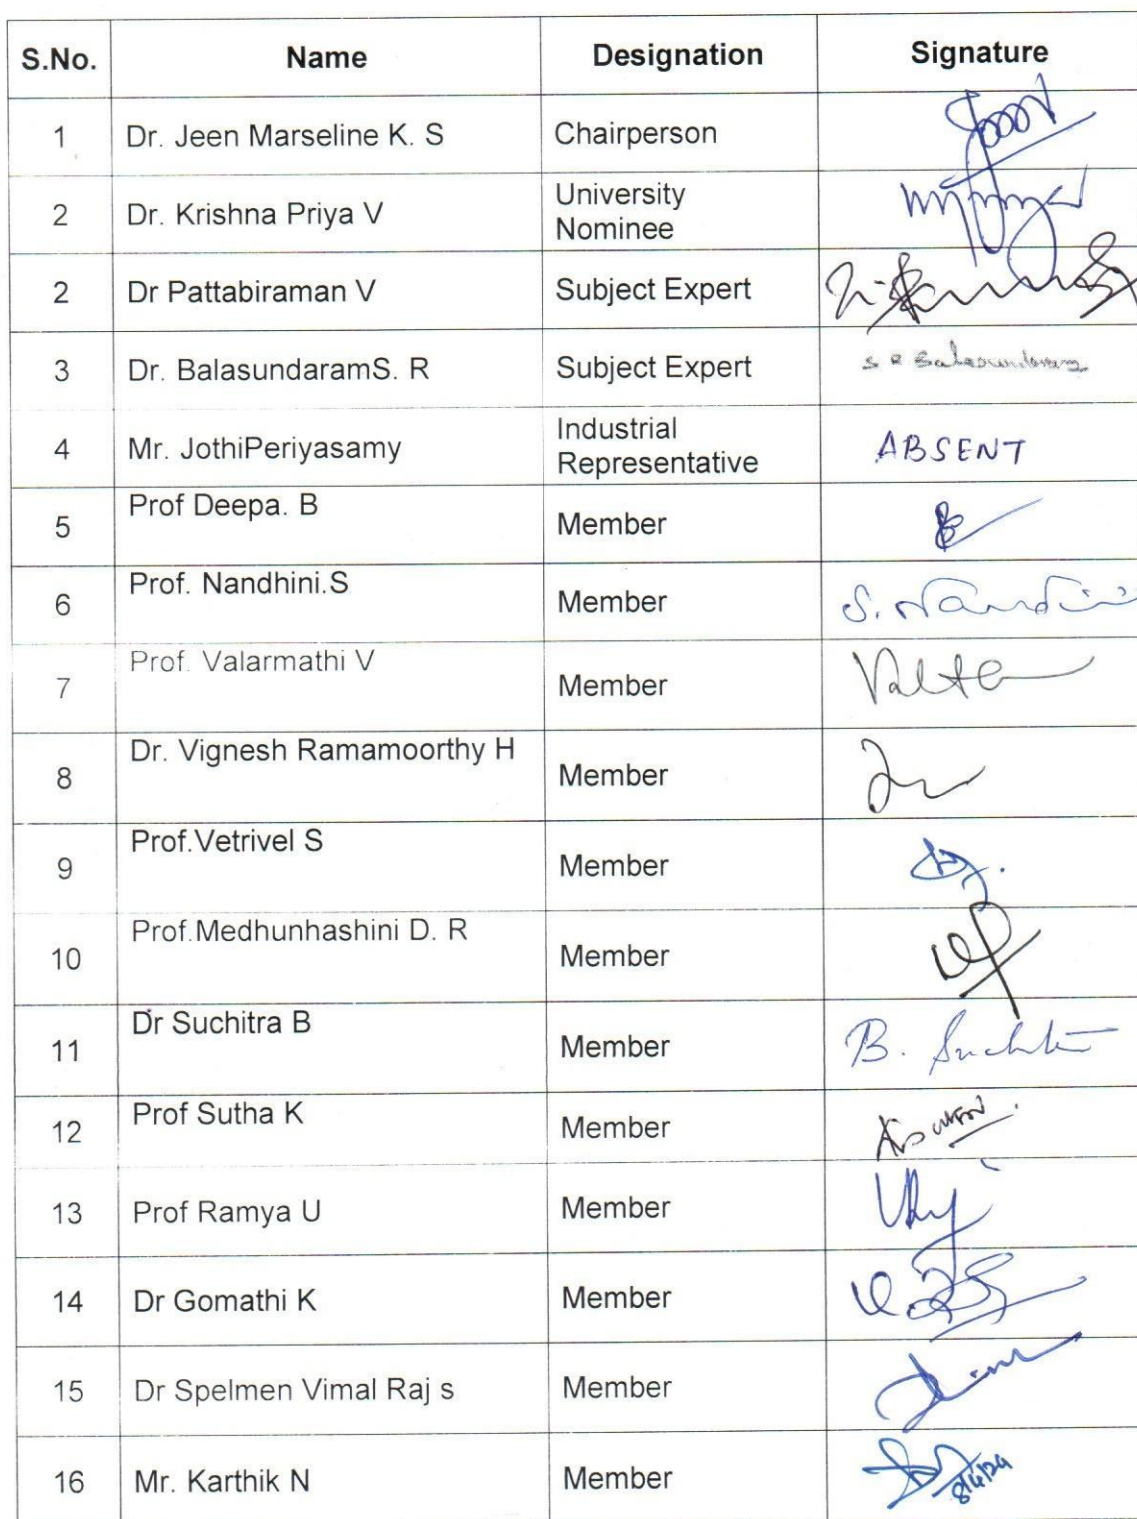 S.No. Name Designation Signature
1 Dr. Jeen Marseline K. S Chairperson
2 Dr. Krishna Priya V University
Nominee
2 Dr Pattabiraman V Subject Expert
3 Dr. BalasundaramS. R Subject Expert S R Balasundaram
4 Mr. JothiPeriyasamy Industrial
Representative ABSENT
5 Prof Deepa. B Member
6 Prof. Nandhini.S Member S. Nandini
7 Prof. Valarmathi V Member
8 Dr. Vignesh Ramamoorthy H Member
9 Prof.Vetrivel S Member
10 Prof.Medhunhashini D. R Member
11 Dr Suchitra B Member B. Suchitra
12 Prof Sutha K Member
13 Prof Ramya U Member
14 Dr Gomathi K Member
15 Dr Spelmen Vimal Raj s Member
16 Mr. Karthik N Member 8/4/24